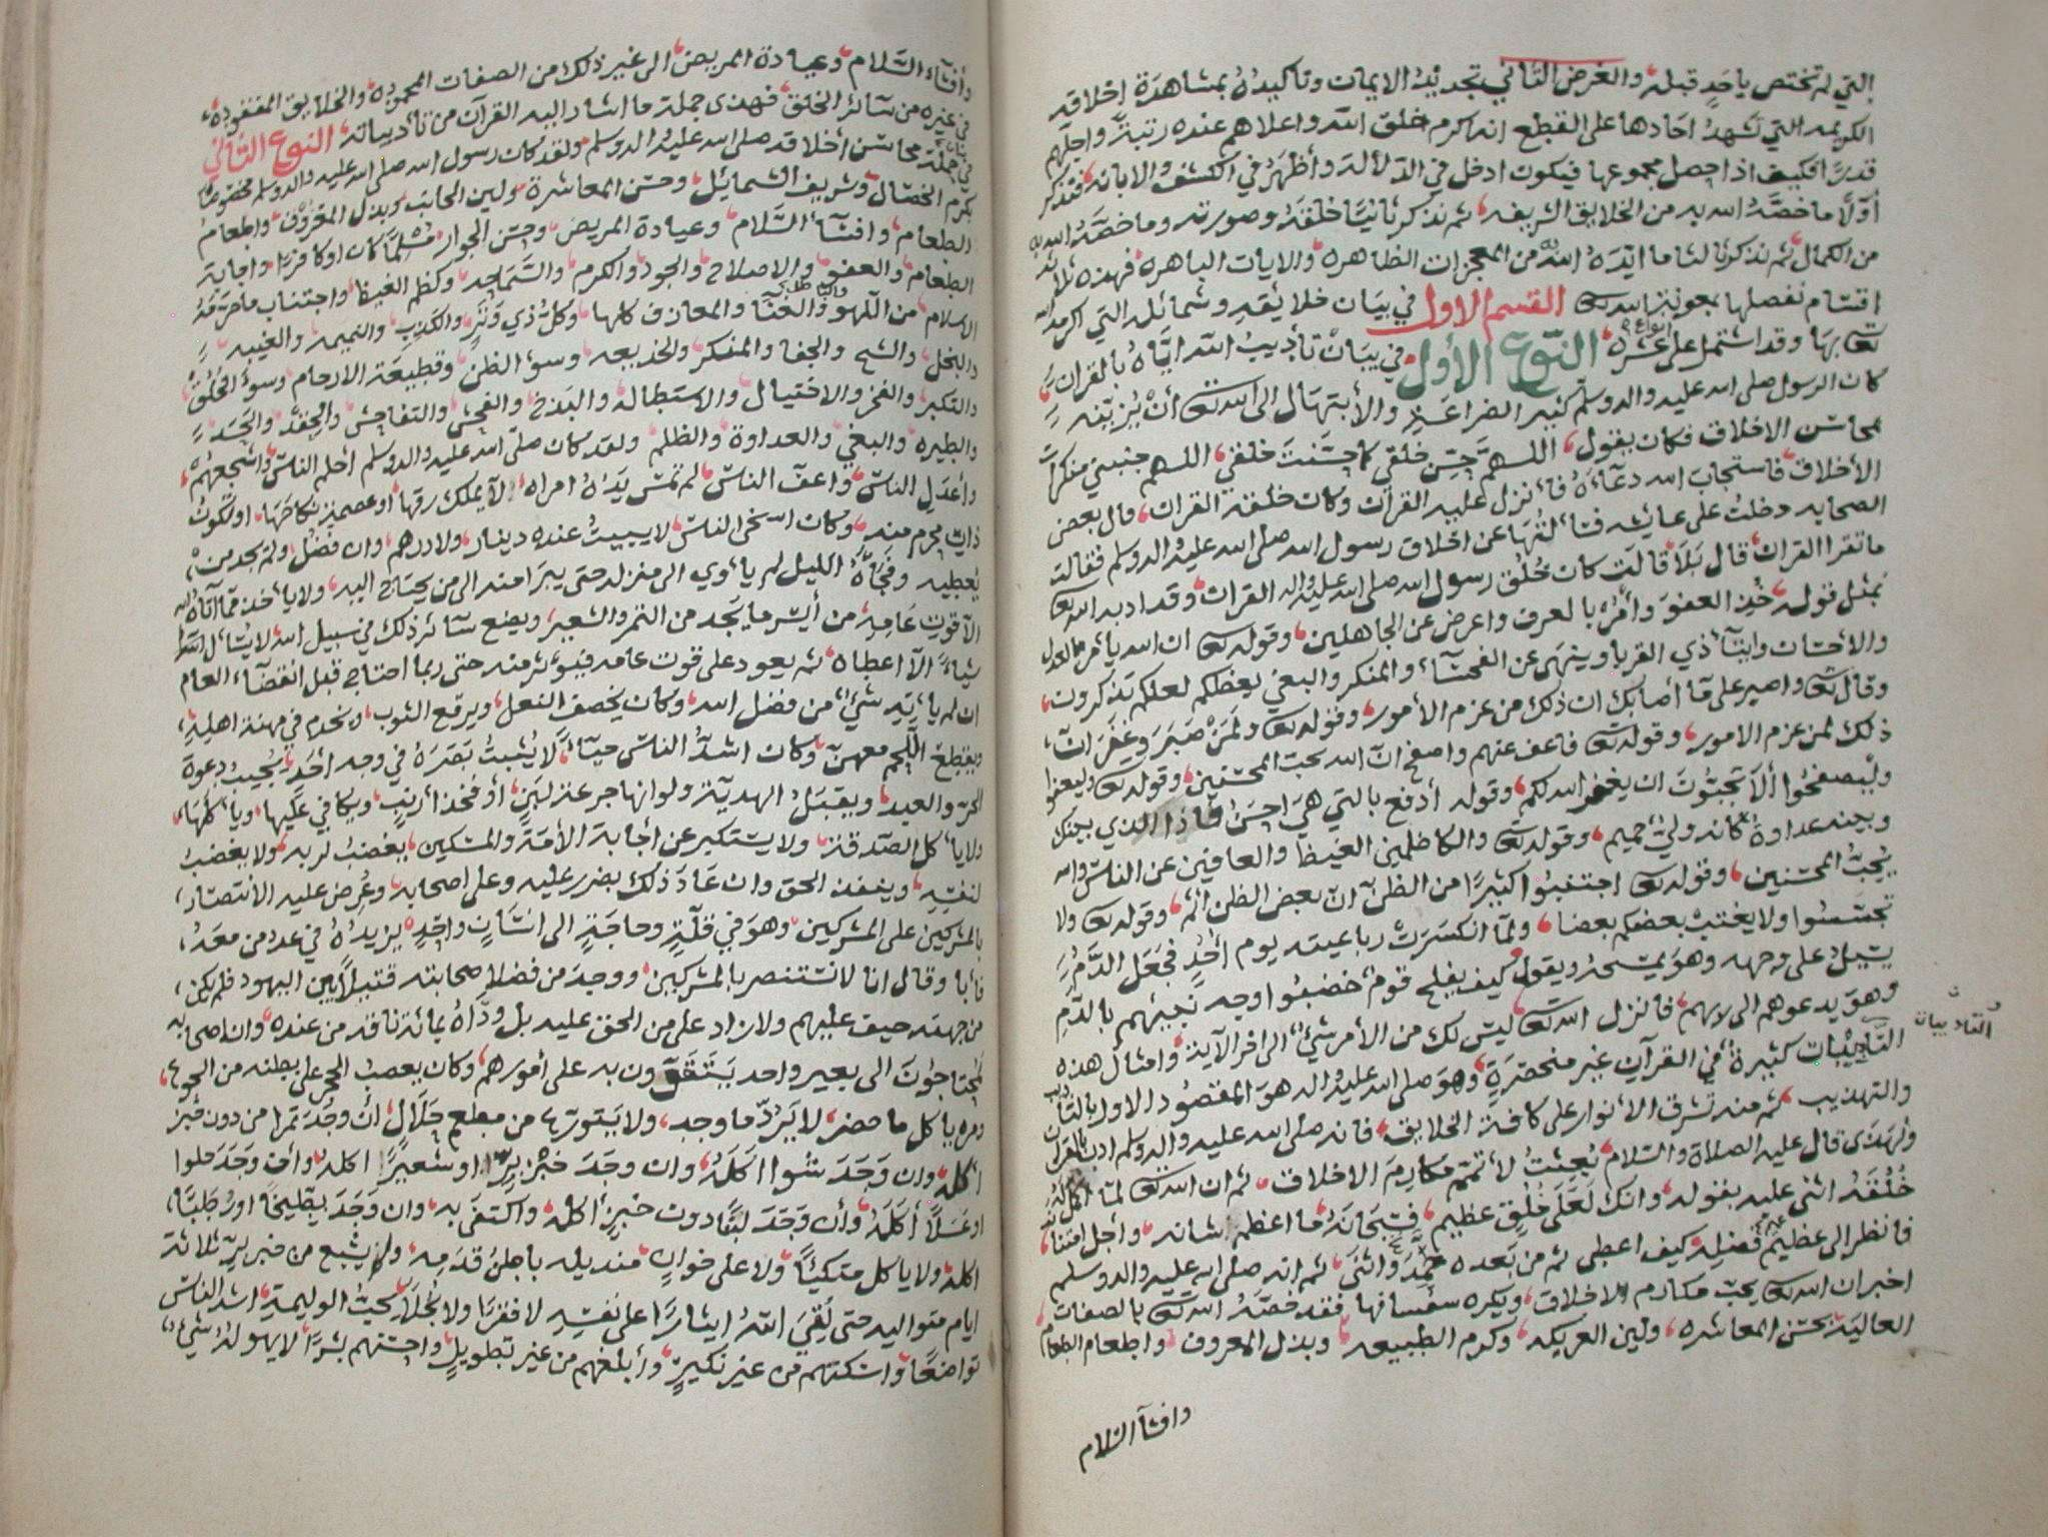 التي لم تختص باحد قبله والغرض الثاني تجديد الايمان وتاكيده بمشاهدة اخلاقه
الكريمه التي تشهد احادها على القطع انه اكرم خلق الله واعلاهم عنده رتبة واجلهم
قدرا فكيف اذا حصل مجموعها فيكون ادخل في الدلالة وأظهر في الكشف والابانه فنذكر
أولا ما خصه الله به من الخلايق الشريفه ثم نذكر ثانيا خلقه وصورته وما خصه الله به
من الكمال ثم نذكر ثالثا ما ايده الله من المعجزات الظاهره والايات الباهره فهذه ثلاثة
اقسام نفصلها بمعونة الله تعالى القسم الاول في بيان خلايقه وشمائله التي اكرمه الله
تعالى بها وقد اشتمل على عشره انواع النوع الأول في بيان تأديب الله اياه بالقران
كان الرسول صلى الله عليه واله وسلم كثير الضراعة والأبتهال الى الله تعالى أن يزينه
بمحاسن الاخلاق فكان يقول اللهم حسن خلقي كما حسنت خلقي اللهم جنبني منكرات
الأخلاق فاستجاب الله دعاءه فأنزل عليه القرآن وكان خلقه القران قال بعض
الصحابه دخلت على عايشه فسألتها عن اخلاق رسول الله صلى الله عليه واله وسلم فقالت
ما تقرا القران قال بلا قالت كان خلق رسول الله صلى الله عليه واله القران وقد ادبه الله تعالى
بمثل قوله خذ العفو وأمر بالعرف واعرض عن الجاهلين وقوله تعالى ان الله يأمر بالعدل
والاحسان وايتأ ذي القربا وينهى عن الفحشآء والمنكر والبغي يعظكم لعلكم تذكرون
وقال تعالى واصبر على مآ أصابك ان ذلك من عزم الأمور وقوله تعالى ولمن صبر وغفر ان
ذلك لمن عزم الامور وقوله تعالى فاعف عنهم واصفح ان الله يحب المحسنين وقوله تعالى وليعفوا
وليصفحوا ألا تحبون ان يغفر الله لكم وقوله أدفع بالتي هي احسن فاذا الذي بينك
وبينه عداوة كانه ولي حميم وقوله تعالى والكاظمين الغيظ والعافين عن الناس والله
يحب المحسنين وقوله تعالى اجتنبوا كثيرا من الظن ان بعض الظن اثم وقوله تعالى ولا
تجسسوا ولا يغتب بعضكم بعضا ولما انكسرت رباعيته يوم أحد فجعل الدم
يسيل على وجهه وهو يمسحه ويقول كيف يفلح قوم خضبوا وجه نبيهم بالدم
وهو يدعوهم الى ربهم فانزل الله تعالى ليس لك من الأمر شيئ الى اخر الآية وامثال هذه
التأديبات كثيرة في القرآن غير منحصرة وهو صلى الله عليه واله هو المقصود الاول بالتأديب
التاديبات
والتهذيب ثم منه تشرق الأنوار على كافة الخلايق فانه صلى الله عليه واله وسلم ادب بالقران
ولهذى قال عليه الصلاة والسلام بعثت لأتمم مكارم الاخلاق ثم ان الله تعالى لما اكمل له
خلقه اثنى عليه بقوله وانك لعلى خلق عظيم فسبحانه ما اعظم شانه وأجل امتنانه
فانظر الى عظيم فضله كيف اعطى ثم من بعده حمد واثنى ثم انه صلى الله عليه واله وسلم
اخبر ان الله تعالى يحب مكارم الاخلاق ويكره سفسافها فقد خصه الله تعالى بالصفات
العالية بحسن المعاشره ولين العريكه وكرم الطبيعه وبذل المعروف واطعام الطعام
وافشآ السلام
وأفشآء السلام وعيادة المريض الى غير ذلك من الصفات المحموده والخلايق المفقوده
في غيره من سآئر الخلق فهذى جملة ما اشار اليه القرآن من تأديباته النوع الثاني
في بيان جملة محاسن أخلاقه صلى الله عليه واله وسلم ولقد كان رسول الله صلى الله عليه واله وسلم مخصوصا
بكرم الخصال وشريف الشمائيل وحسن المعاشرة ولين الجانب وبذل المعروف واطعام
الطعام وافشآ السلام وعيادة المريض وحسن الجوار مسلما كان اوكافرا واجابة
الطعام والعفو والاصلاح والجود والكرم والسماجه وكظم الغيظ واجتناب ما حرمه
الاسلام من اللهو والغنا والمعازف كلها وكل ذي وتر والكذب والنميمه والغيبه
والبخل والشح والجفا والمكر والخديعه وسؤ الظن وقطيعة الارحام وسوء الخلق
والتكبر والفخر والاختيال والاستطاله والبذخ والفحش والتفاحش والحقد والحسد
والطيره والبغي والعداوة والظلم ولقد كان صلى الله عليه واله وسلم أحلم الناس واشجعهم
وأعدل الناس واعف الناس لم تمس يده امراه لا يملك رقها او عصمة نكاحها او تكون
ذات محرم منه وكان اسخى الناس لا يبيت عنده دينار ولا درهم وان فضل ولم يجد من
يعطيه وفجأه الليل لم يأوي الى منزله حتى يبرا منه الى من يحتاج اليه ولا يأخذ مما آتاه الله
الا قوت عامه من أيسر ما يجد من التمر والشعير ويضع سآئر ذلك في سبيل الله لا يسأل
شيأ الا اعطاه ثم يعود على قوت عامه فيؤثر منه حتى ربما احتاج قبل انقضآء العام
ان لم يأتيه شيئ من فضل الله وكان يخصف النعل ويرقع الثوب ويخدم في مهنة اهله
ويقطع اللحم معهن وكان اشد الناس حيآء لا يثبت بصره في وجه أحد يجيب دعوة
الحر والعبد ويقبل الهدية ولو انها جرعة لبن أو فخذ أرنب ويكافي عليها ويأكلها
ولا يأكل الصدقة ولا يستكبر عن أجابة الأمة والمسكين يغضب لربه ولا يغضب
لنفسه وينفذ الحق وان عاد ذلك بضرر عليه وعلى اصحابه وعرض عليه الانتصار
بالمشركين على المشركين وهو في قلة وحاجة الى انسان واحد يزيده في عدد من معه
فأبا وقال انا لا نستنصر بالمشركين ووجد من فضلا صحابته قتيلا بين اليهود فلم يكن
من جهته حيف عليهم ولا زاد على من الحق عليه بل وداه بمائة ناقه من عنده وان اصحابه
لمحتاجون الى بعير واحد يتقوون به على أمورهم وكان يعصب الحجر على بطنه من الجوع
ومره ياكل ما حضر لا يرد ما وجد ولا يتورع من مطعم حلال أن وجد تمرا من دون خبز
أكله وان وجد شوا اكله وان وجد خبز بر او شعير اكله وأن وجد حلوا
او عسلا أكله وأن وجد لبنا دون خبز أكله واكتفى به وان وجد بطيخا او رطبا
اكله ولا ياكل متكيئا ولا على خوان منديله باطن قدمه ولم يشبع من خبز بر ثلاثة
ايام متواليه حتى لقي الله ايثارا على نفسه لا فقرا ولا بخلا يجيب الوليمة اشد الناس
تواضعا واسكتهم من غير تكبر وأبلغهم من غير تطويل واحسنهم بشرا لا يهوله شيئ